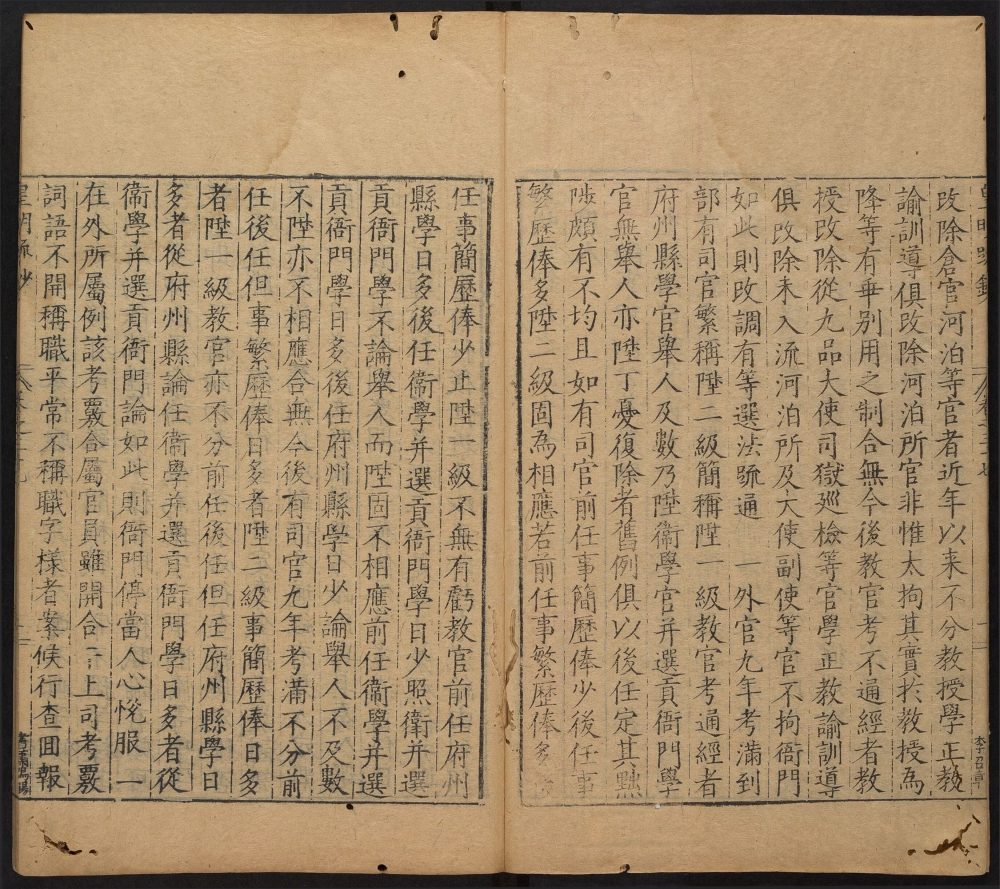 改除倉官河泊等官者近年以来不分教授學正教
諭訓導俱改除河泊所官非惟太拘其實於教授為
降等有乖别用之制合無今後教官考不通經者教
授改除從九品大使司獄廵檢等官學正教諭訓導
俱改除未入流河泊所及大使副使等官不拘衙門
如此則改調有等選法䟽通　一外官九年考滿到
部有司官繁稱陞二級簡稱陞一級教官考通經者
府州縣學官舉人及數乃陞衛學官并選貢衙門學
官無舉人亦陞丁憂復除者舊例俱以後任定其黜
陟頗有不均且如有司官前任事簡歷俸少後任事
繁歷俸多陞二級固為相應若前任事繁歷俸多
任事簡歷俸少止陞一級不無有虧教官前任府州
縣學日多後任衛學并選貢衙門學日少照衛并選
貢衙門學不論舉人而陞固不相應前任衛學并選
貢衙門學日多後任府州縣學日少論舉人不及數
不陞亦不相應合無今後有司官九年考滿不分前
任後任但事繁歷俸日多者陞二級事簡歷俸日多
者陞一級教官亦不分前任後任但任府州縣學日
多者從府州縣論任衛學并選貢衙門學日多者從
衛學并選貢衙門論如此則衙門停當人心悅服　一
在外所屬例該考覈合屬官員雖開合二上司考覈
詞語不開稱職平常不稱職字樣者案候行查回報